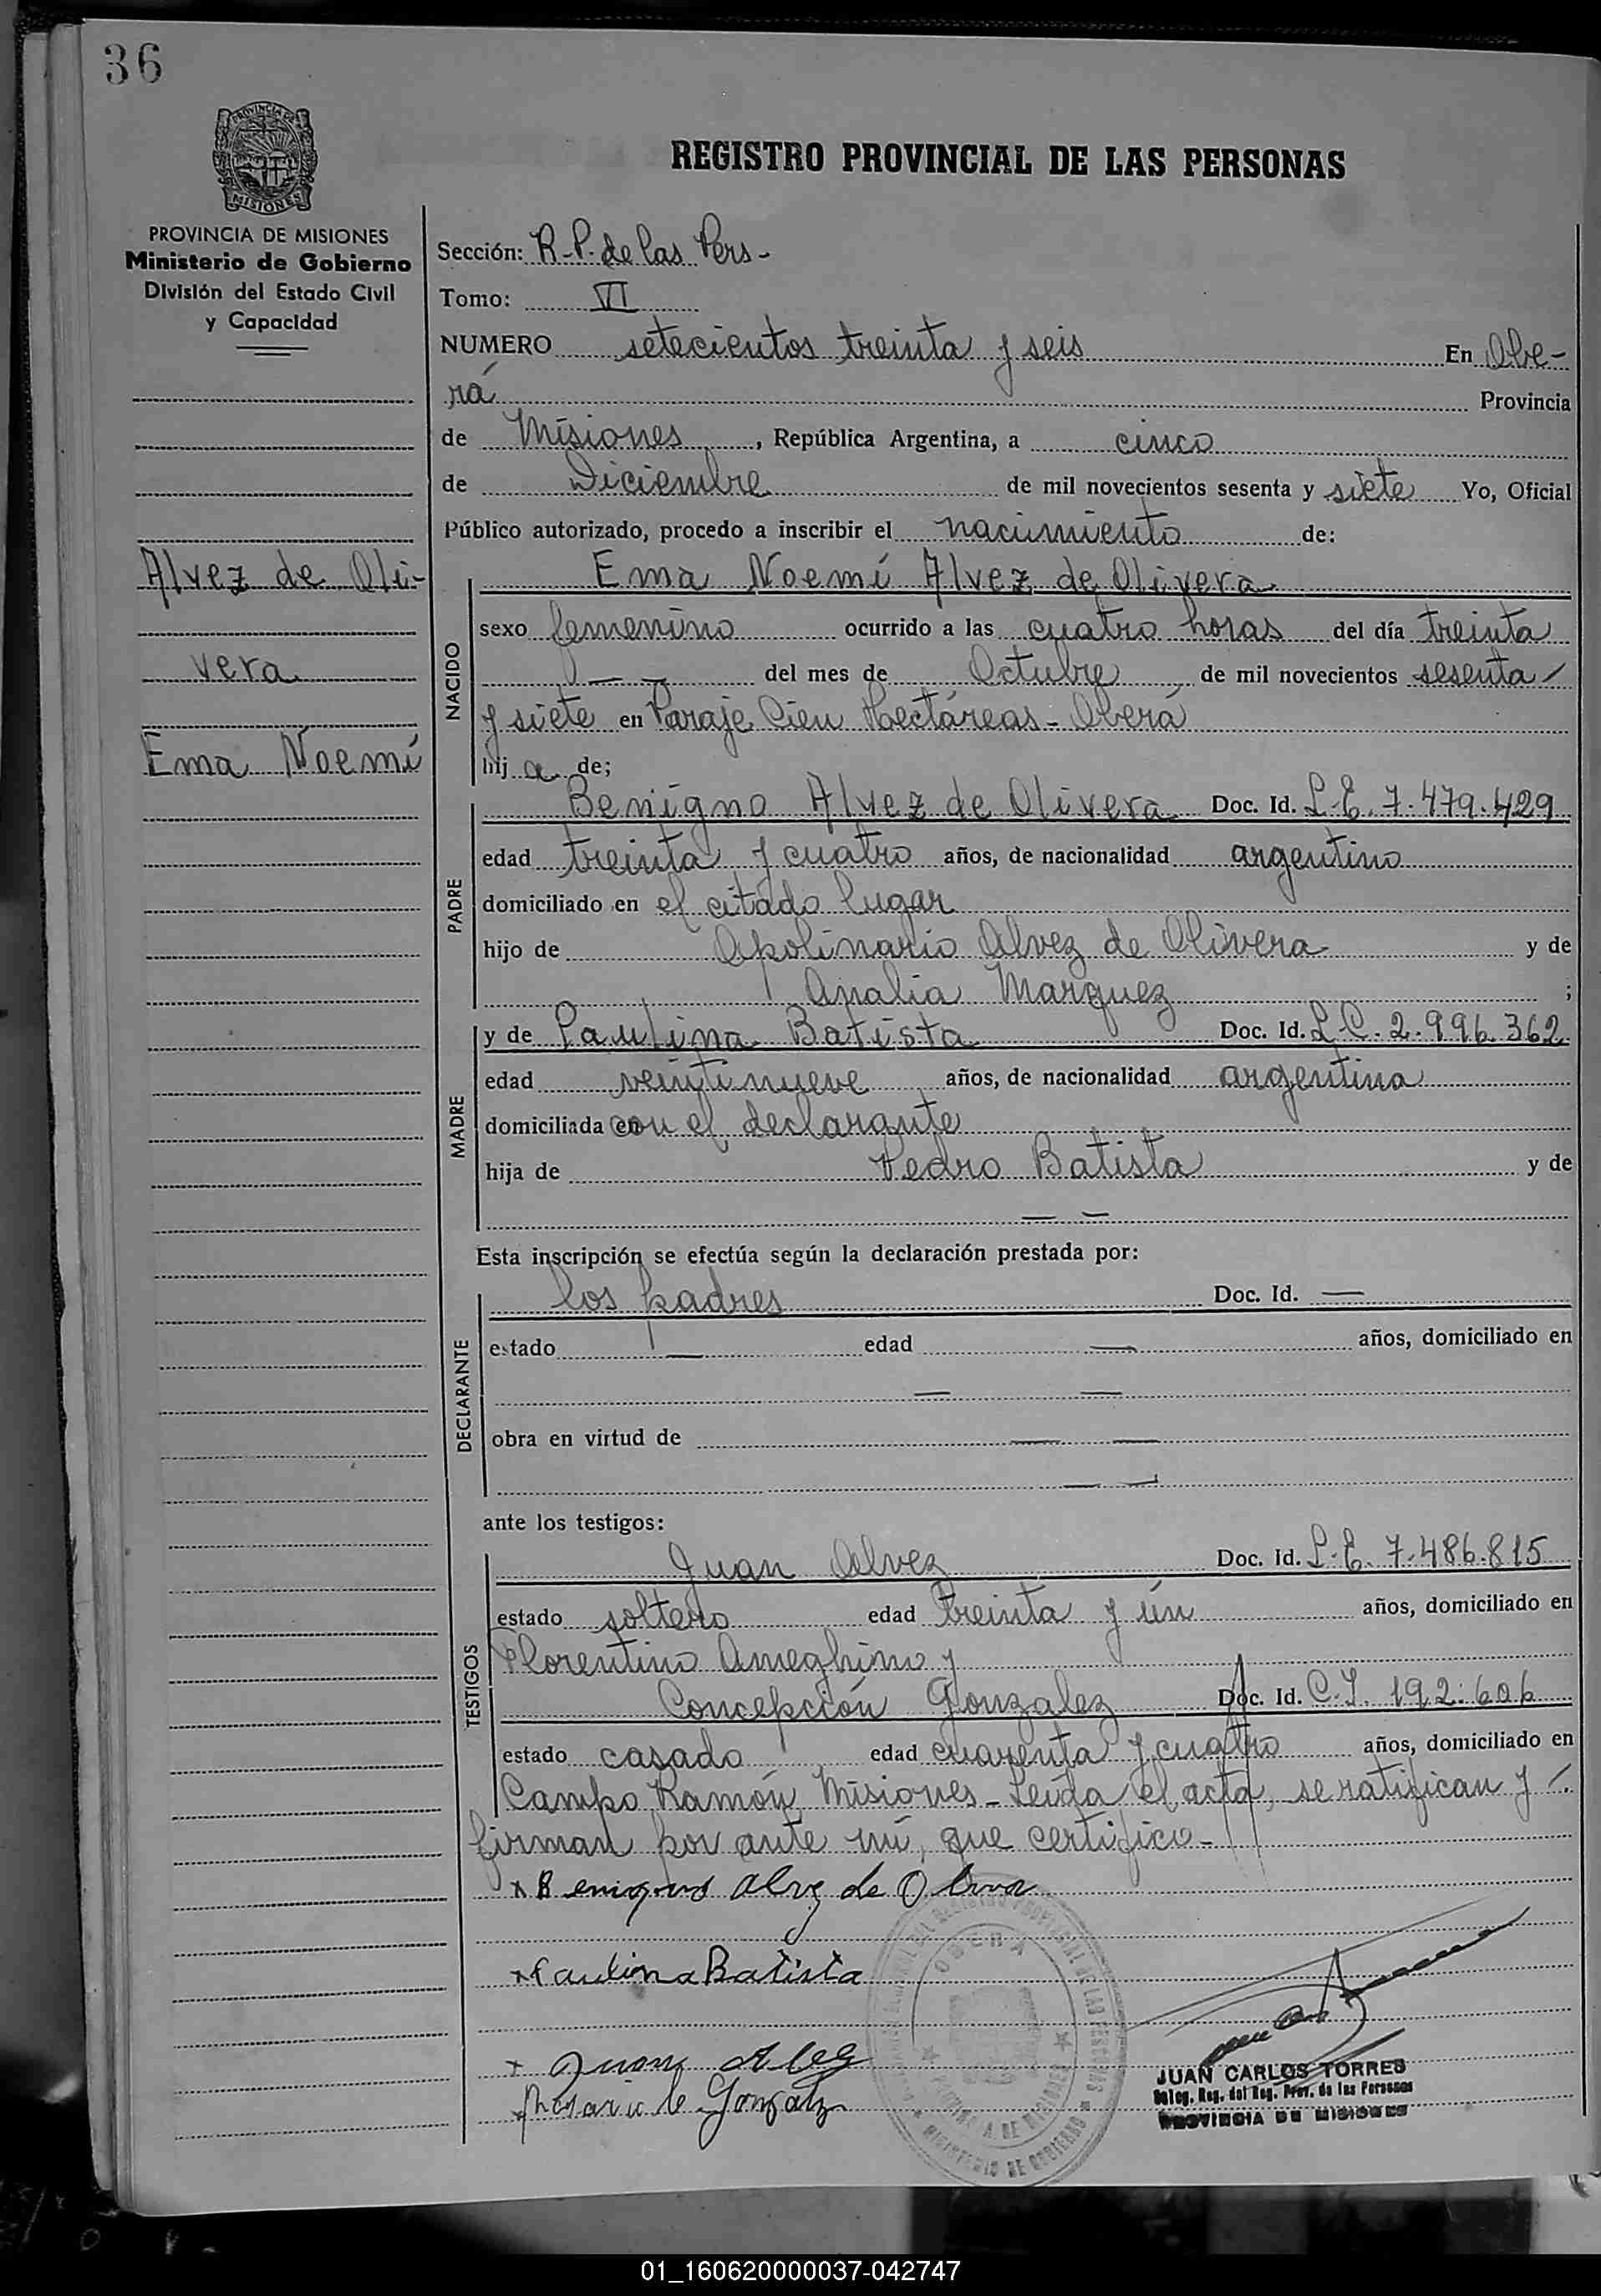 36
PROVINCIA DE
MISIONES
PROVINCIA DE MISIONES
Ministerio de Gobierno
División del Estado Civil
y Capacidad
Alvez de Oli-
vera
Ema Noemí
REGISTRO PROVINCIAL DE LAS PERSONAS
Sección: R.P. de las Pers-
Tomo: VI
NUMERO setecientos treinta y seis En Obe-
rá Provincia
de Misiones, República Argentina, a cinco
de Diciembre de mil novecientos sesenta y siete Yo, Oficial
Público autorizado, procedo a inscribir el nacimiento de:
NACIDO
Ema Noemí Alvez de Olivera
sexo femenino ocurrido a las cuatro horas del día treinta
— — del mes de Octubre de mil novecientos sesenta
y siete en Paraje Cien Hectáreas - Oberá
hij a de;
PADRE
Benigno Alvez de Olivera Doc. Id. L.E. 7.479.429
edad treinta y cuatro años, de nacionalidad argentino
domiciliado en el citado lugar
hijo de Apolinario Alvez de Olivera y de
Analia Marquez ;
MADRE
y de Paulina Batista Doc. Id. L.C. 2.996.362
edad veintinueve años, de nacionalidad argentina
domiciliada en con el declarante
hija de Pedro Batista y de
— —
Esta inscripción se efectúa según la declaración prestada por:
DECLARANTE
los padres Doc. Id. —
estado — edad — años, domiciliado en
— —
obra en virtud de — —
— —
ante los testigos:
TESTIGOS
Juan Alvez Doc. Id. L.E. 7.486.815
estado soltero edad treinta y ún años, domiciliado en
Florentino Ameghino y
Concepción Gonzalez Doc. Id. C.I. 192.606
estado casado edad cuarenta y cuatro años, domiciliado en
Campo Ramón, Misiones - Leída el acta, se ratifican y
firman por ante mí, que certifico.-
x Benigno Alvz de Olivera
x Paulina Batista
OBERA
PROVINCIA DE MISIONES
MINISTERIO DE GOBIERNO
x Juan Alvez
Gonzalz
JUAN CARLOS TORRES
Deleg. Reg. del Reg. Prov. de las Personas
PROVINCIA DE MISIONES
01_160620000037-042747